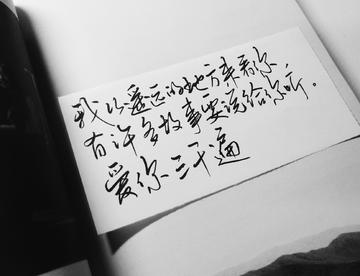 我从遥远的地方来看你
有许多故事要说给你听。
爱你三千遍